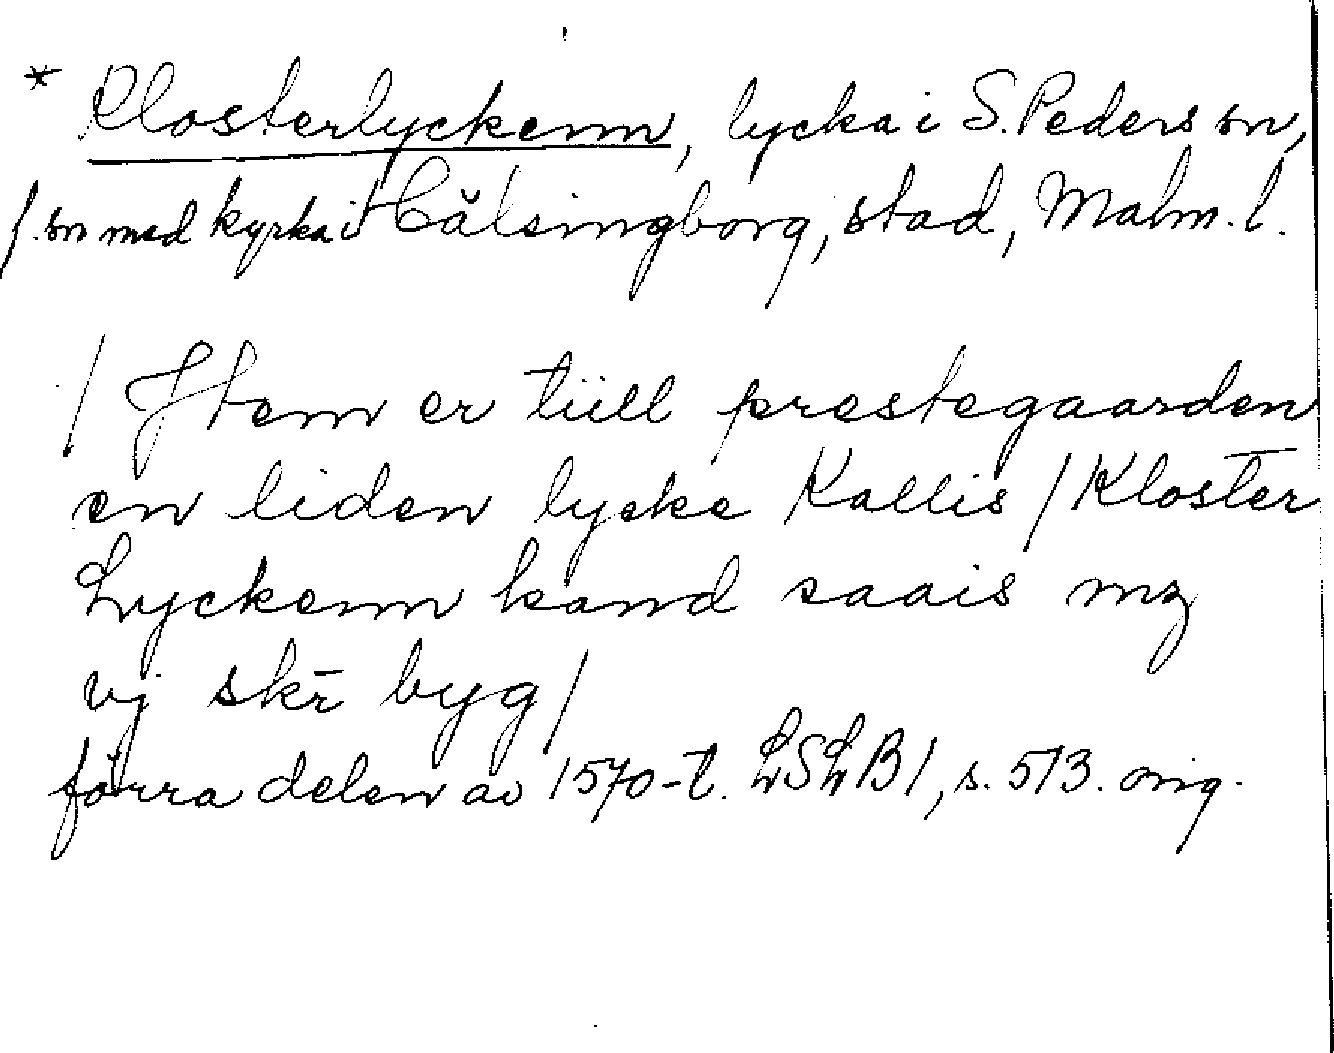 * Klosterlyckenn, lycka i S. Peders sn,
f. sn med kyrka i Hälsingborg, stad, Malm. l.
/ Jtem er tiill prestegaarden
en liden lycke Kallis / Kloster
Lyckenn kand saais mz
vj skr̄ byg /
förra delen av 1570-t. LSLB1, s. 513. orig.